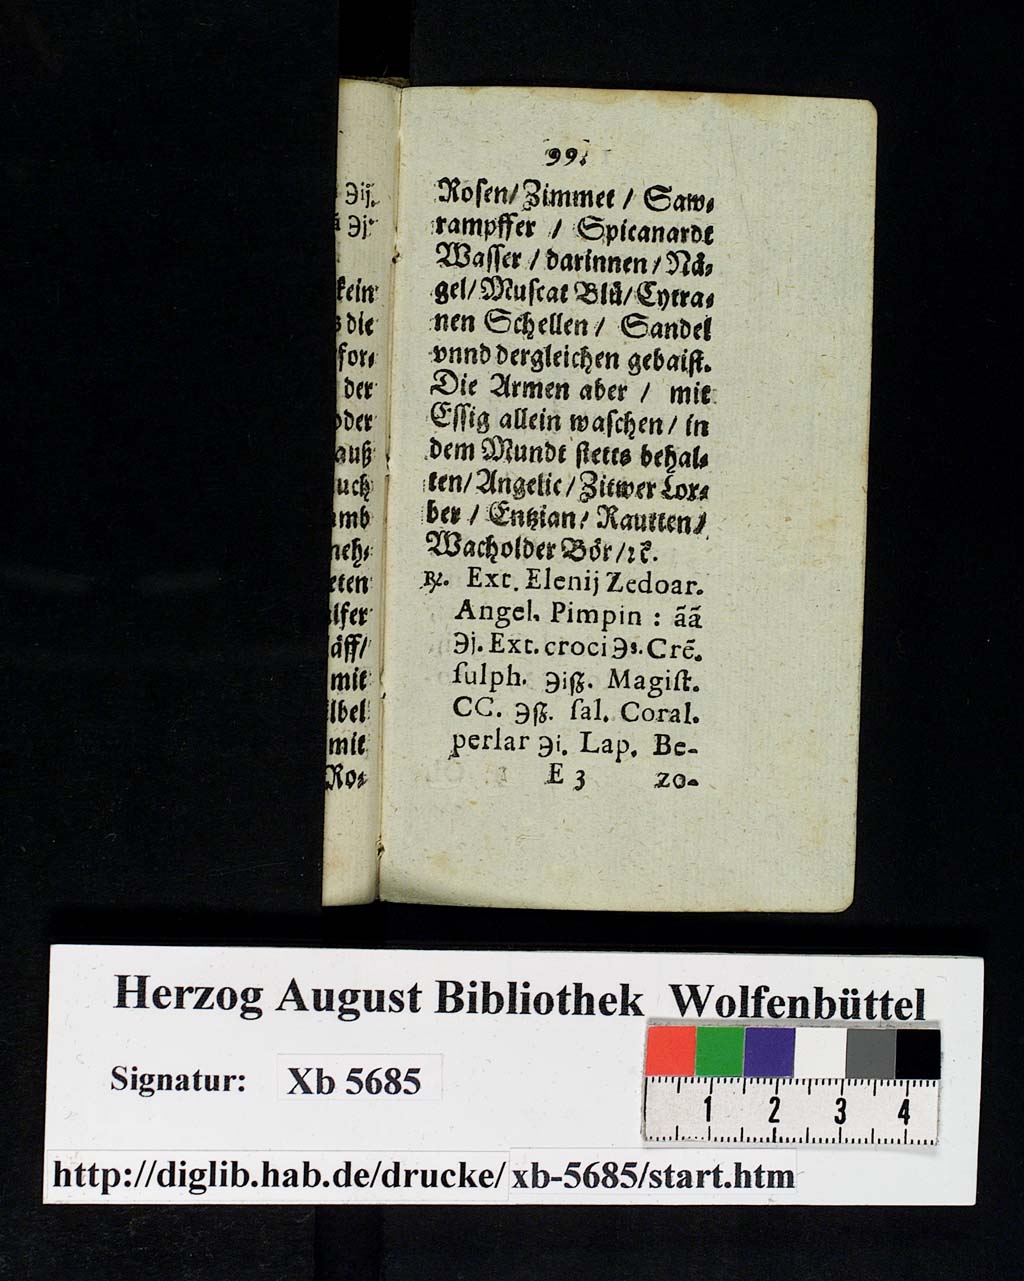 99.
Rosen/ Zimmet / Saw⸗
rampffer / Spicanardt
Wasser / darinnen / Nä⸗
gel/ Muscat Blü/ Cytra⸗
nen Schellen / Sandel
vnnd dergleichen gebaist.
Die Armen aber / mit
Essig allein waschen / in
dem Mundt stetts behal⸗
ten/ Angelic / Zitwer Lor⸗
ber / Entzian / Rautten /
Wacholder Bör / ꝛc.
℞. Ext. Elenij Zedoar.
Angel. Pimpin : ãã
℈j. Ext. croci ℈s. Crẽ.
sulph. ℈iß. Magist.
CC. ℈ß. sal. Coral.
perlar ℈i. Lap. Be-
E 3 zo-
℈ij.
℈j.
kein
die
for⸗
der
oder
auß
uch
umb
neh⸗
eten
lfer
äff/
mit
lbel
mit
Ro⸗
Herzog August Bibliothek Wolfenbüttel
Signatur: Xb 5685
1 2 3 4
http://diglib.hab.de/drucke/ xb-5685/start.htm